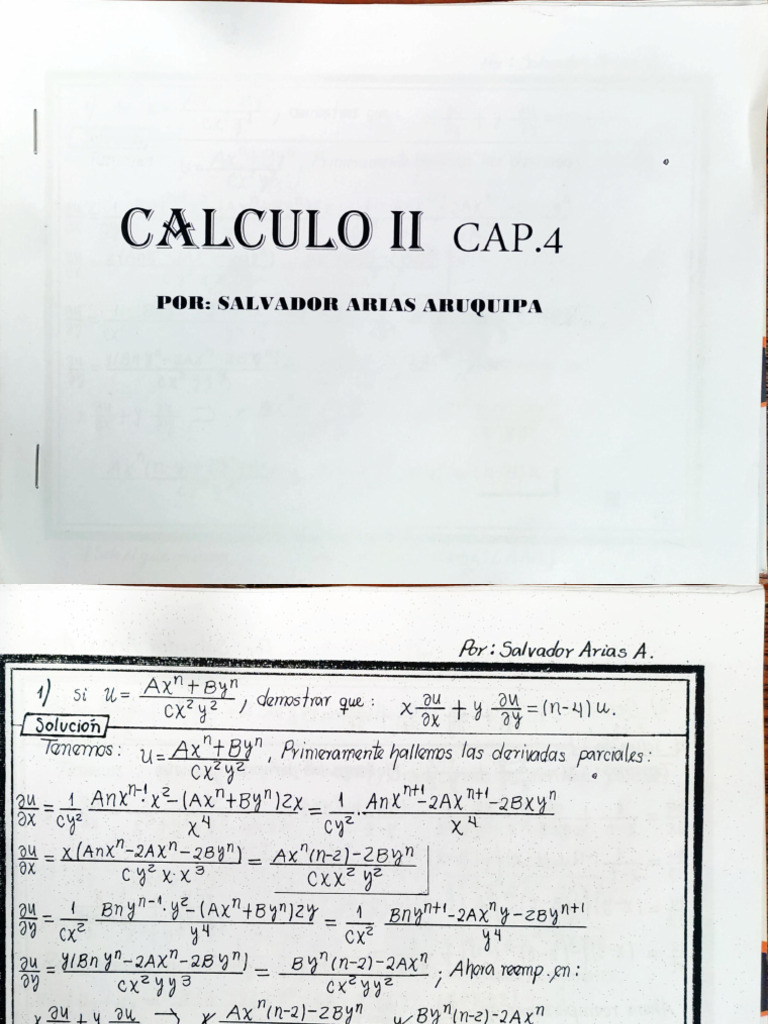 CALCULO II CAP.4
POR: SALVADOR ARIAS ARUQUIPA
Por: Salvador Arias A.
1) si u = \frac{Ax^n + By^n}{cx^2 y^2}, demostrar que: x \frac{∂u}{∂x} + y \frac{∂u}{∂y} = (n-4) u.
Solución
Tenemos: u = \frac{Ax^n + By^n}{cx^2 y^2}, Primeramente hallemos las derivadas parciales:
\frac{∂u}{∂x} = \frac{1}{cy^2} \frac{Anx^{n-1} \cdot x^2 - (Ax^n + By^n) 2x}{x^4} = \frac{1}{cy^2} \cdot \frac{Anx^{n+1} - 2Ax^{n+1} - 2Bxy^n}{x^4}
\frac{∂u}{∂x} = \frac{x(Anx^n - 2Ax^n - 2By^n)}{cy^2 x \cdot x^3} = \frac{Ax^n(n-2) - 2By^n}{cxx^2 y^2}
\frac{∂u}{∂y} = \frac{1}{cx^2} \frac{Bny^{n-1} \cdot y^2 - (Ax^n + By^n) 2y}{y^4} = \frac{1}{cx^2} \frac{Bny^{n+1} - 2Ax^n y - 2By^{n+1}}{y^4}
\frac{∂u}{∂y} = \frac{y(Bny^n - 2Ax^n - 2By^n)}{cx^2 yy^3} = \frac{By^n(n-2) - 2Ax^n}{cx^2 yy^2}; Ahora reemp. en:
x \frac{∂u}{} + y \frac{∂u}{} → x \frac{Ax^n(n-2) - 2By^n}{} y \frac{By^n(n-2) - 2Ax^n}{}